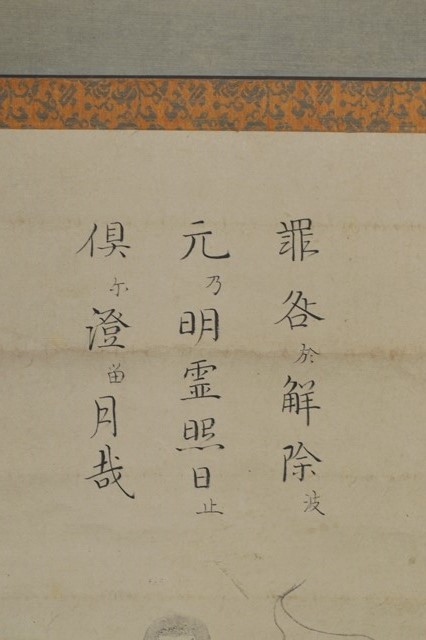 罪咎於解除波
元乃明霊照日止
倶尓澄留月哉